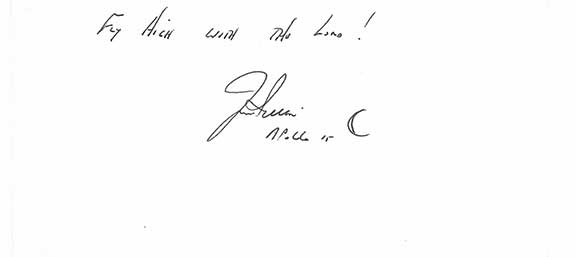 Fly High with the Lord!
Jim Irwin
Apollo 15